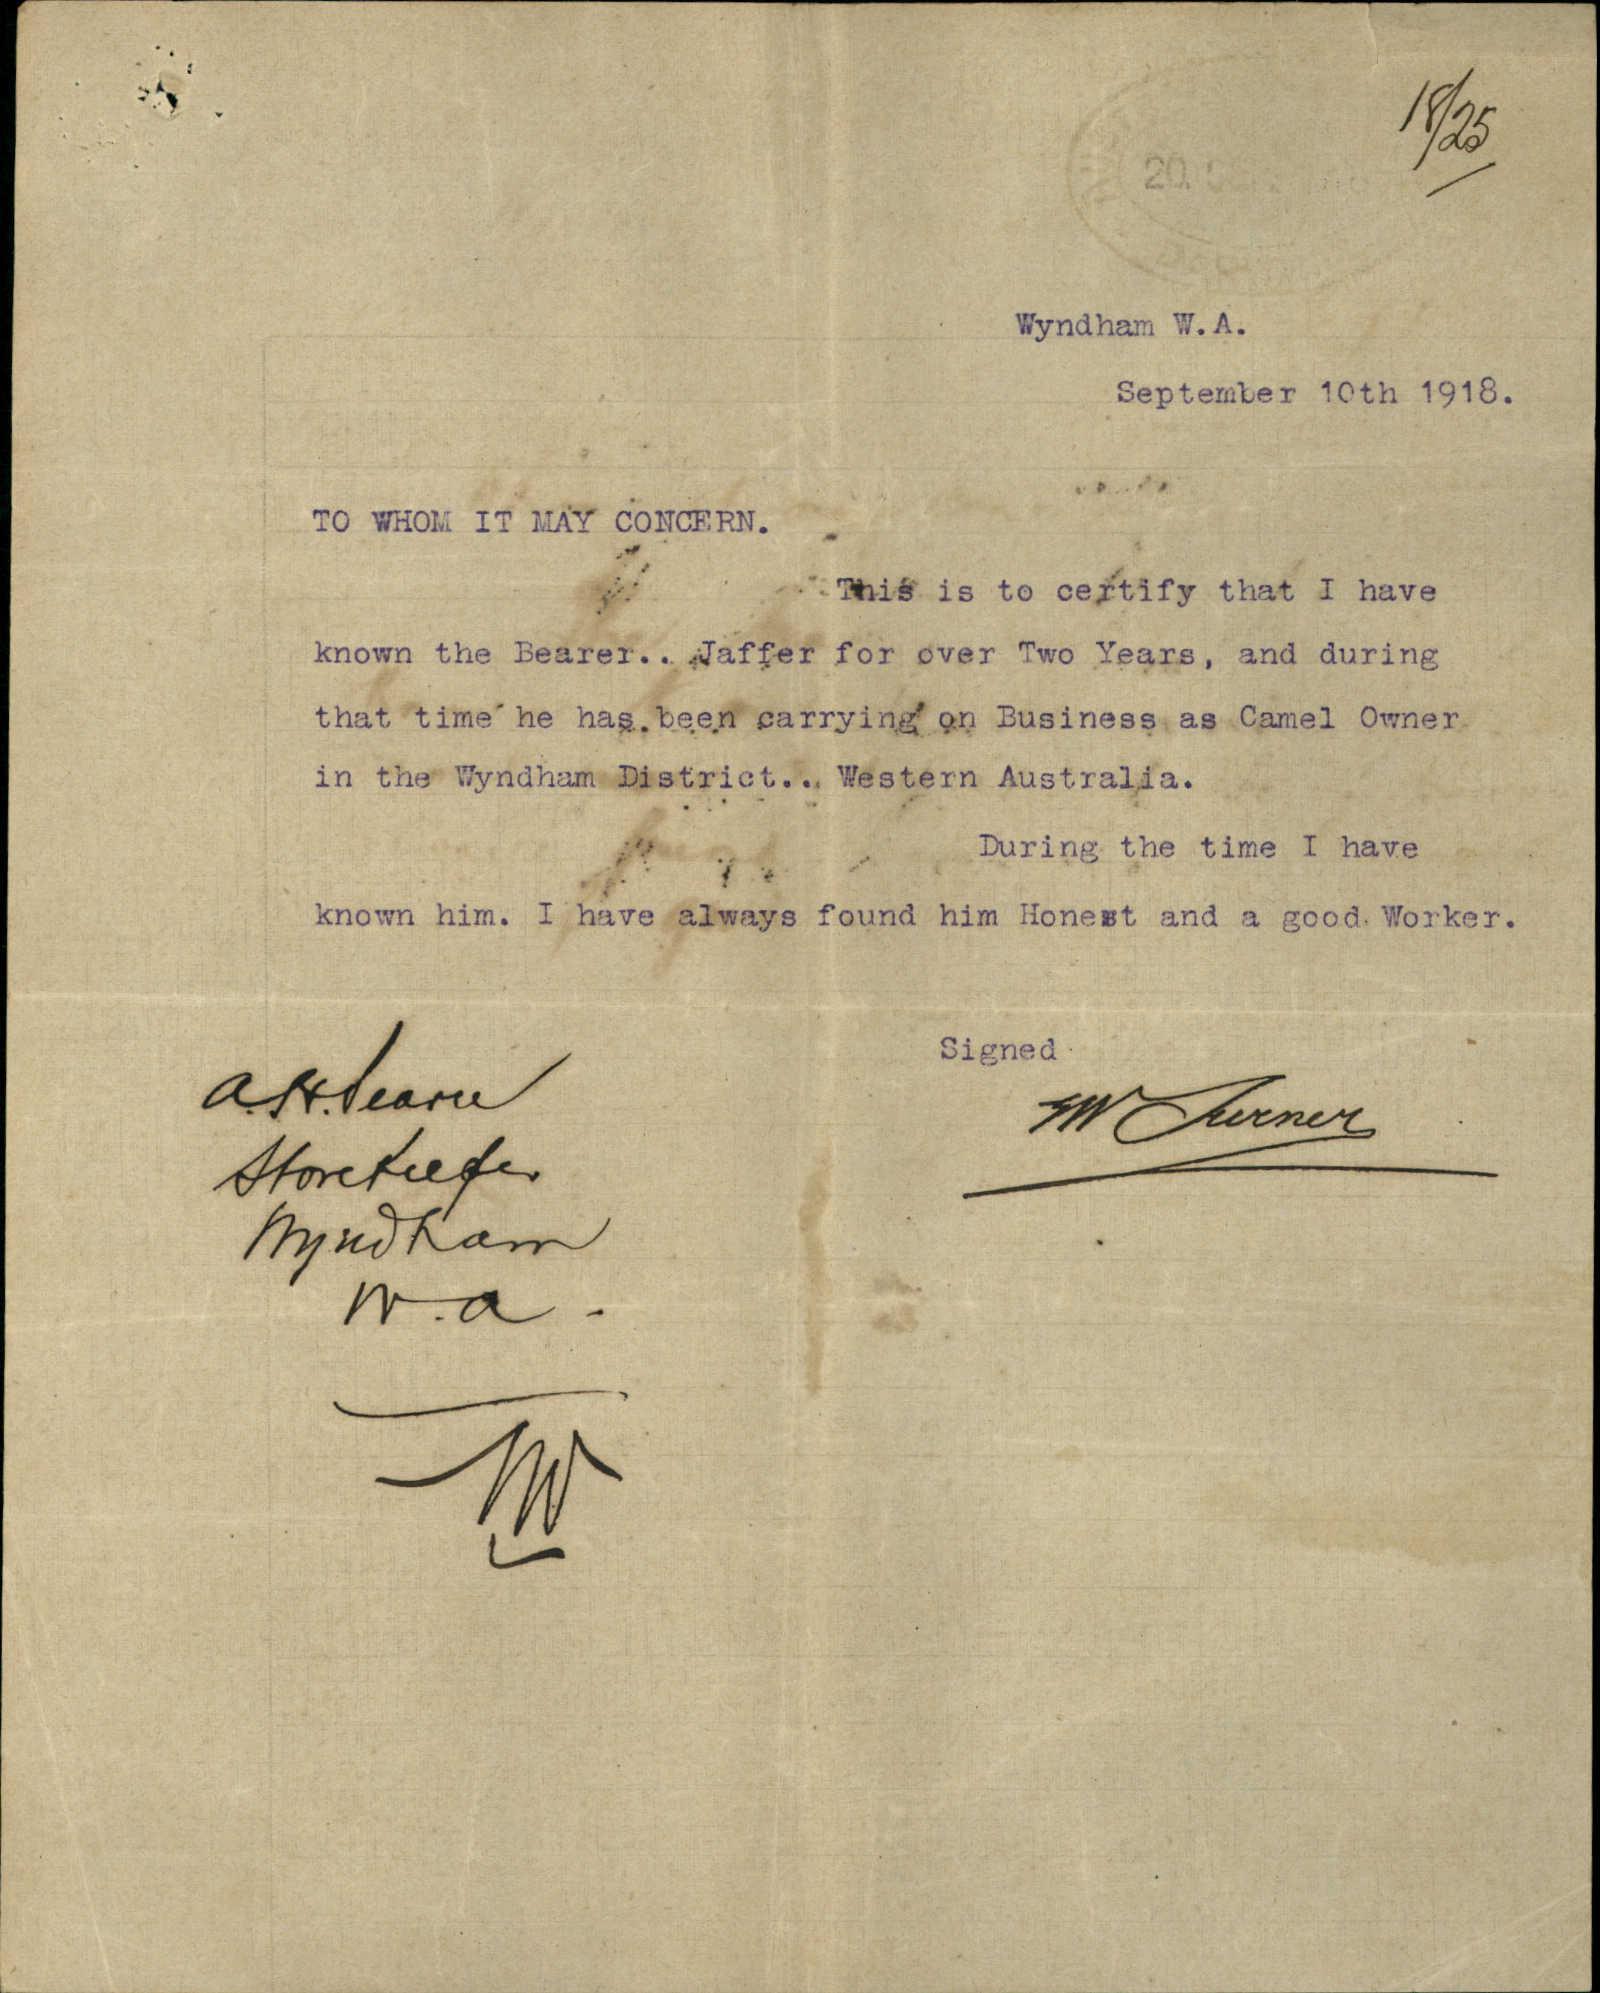 18/25
20.
Wyndham W.A.
September 10th 1918.
TO WHOM IT MAY CONCERN.
This is to certify that I have
known the Bearer.. Jaffer for over Two Years, and during
that time he has been carrying on Business as Camel Owner
in the Wyndham District... Western Australia.
During the time I have
known him. I have always found him Honest and a good Worker.
Signed
Turner
A.H.
Storekeeper
Wyndham
W.A.